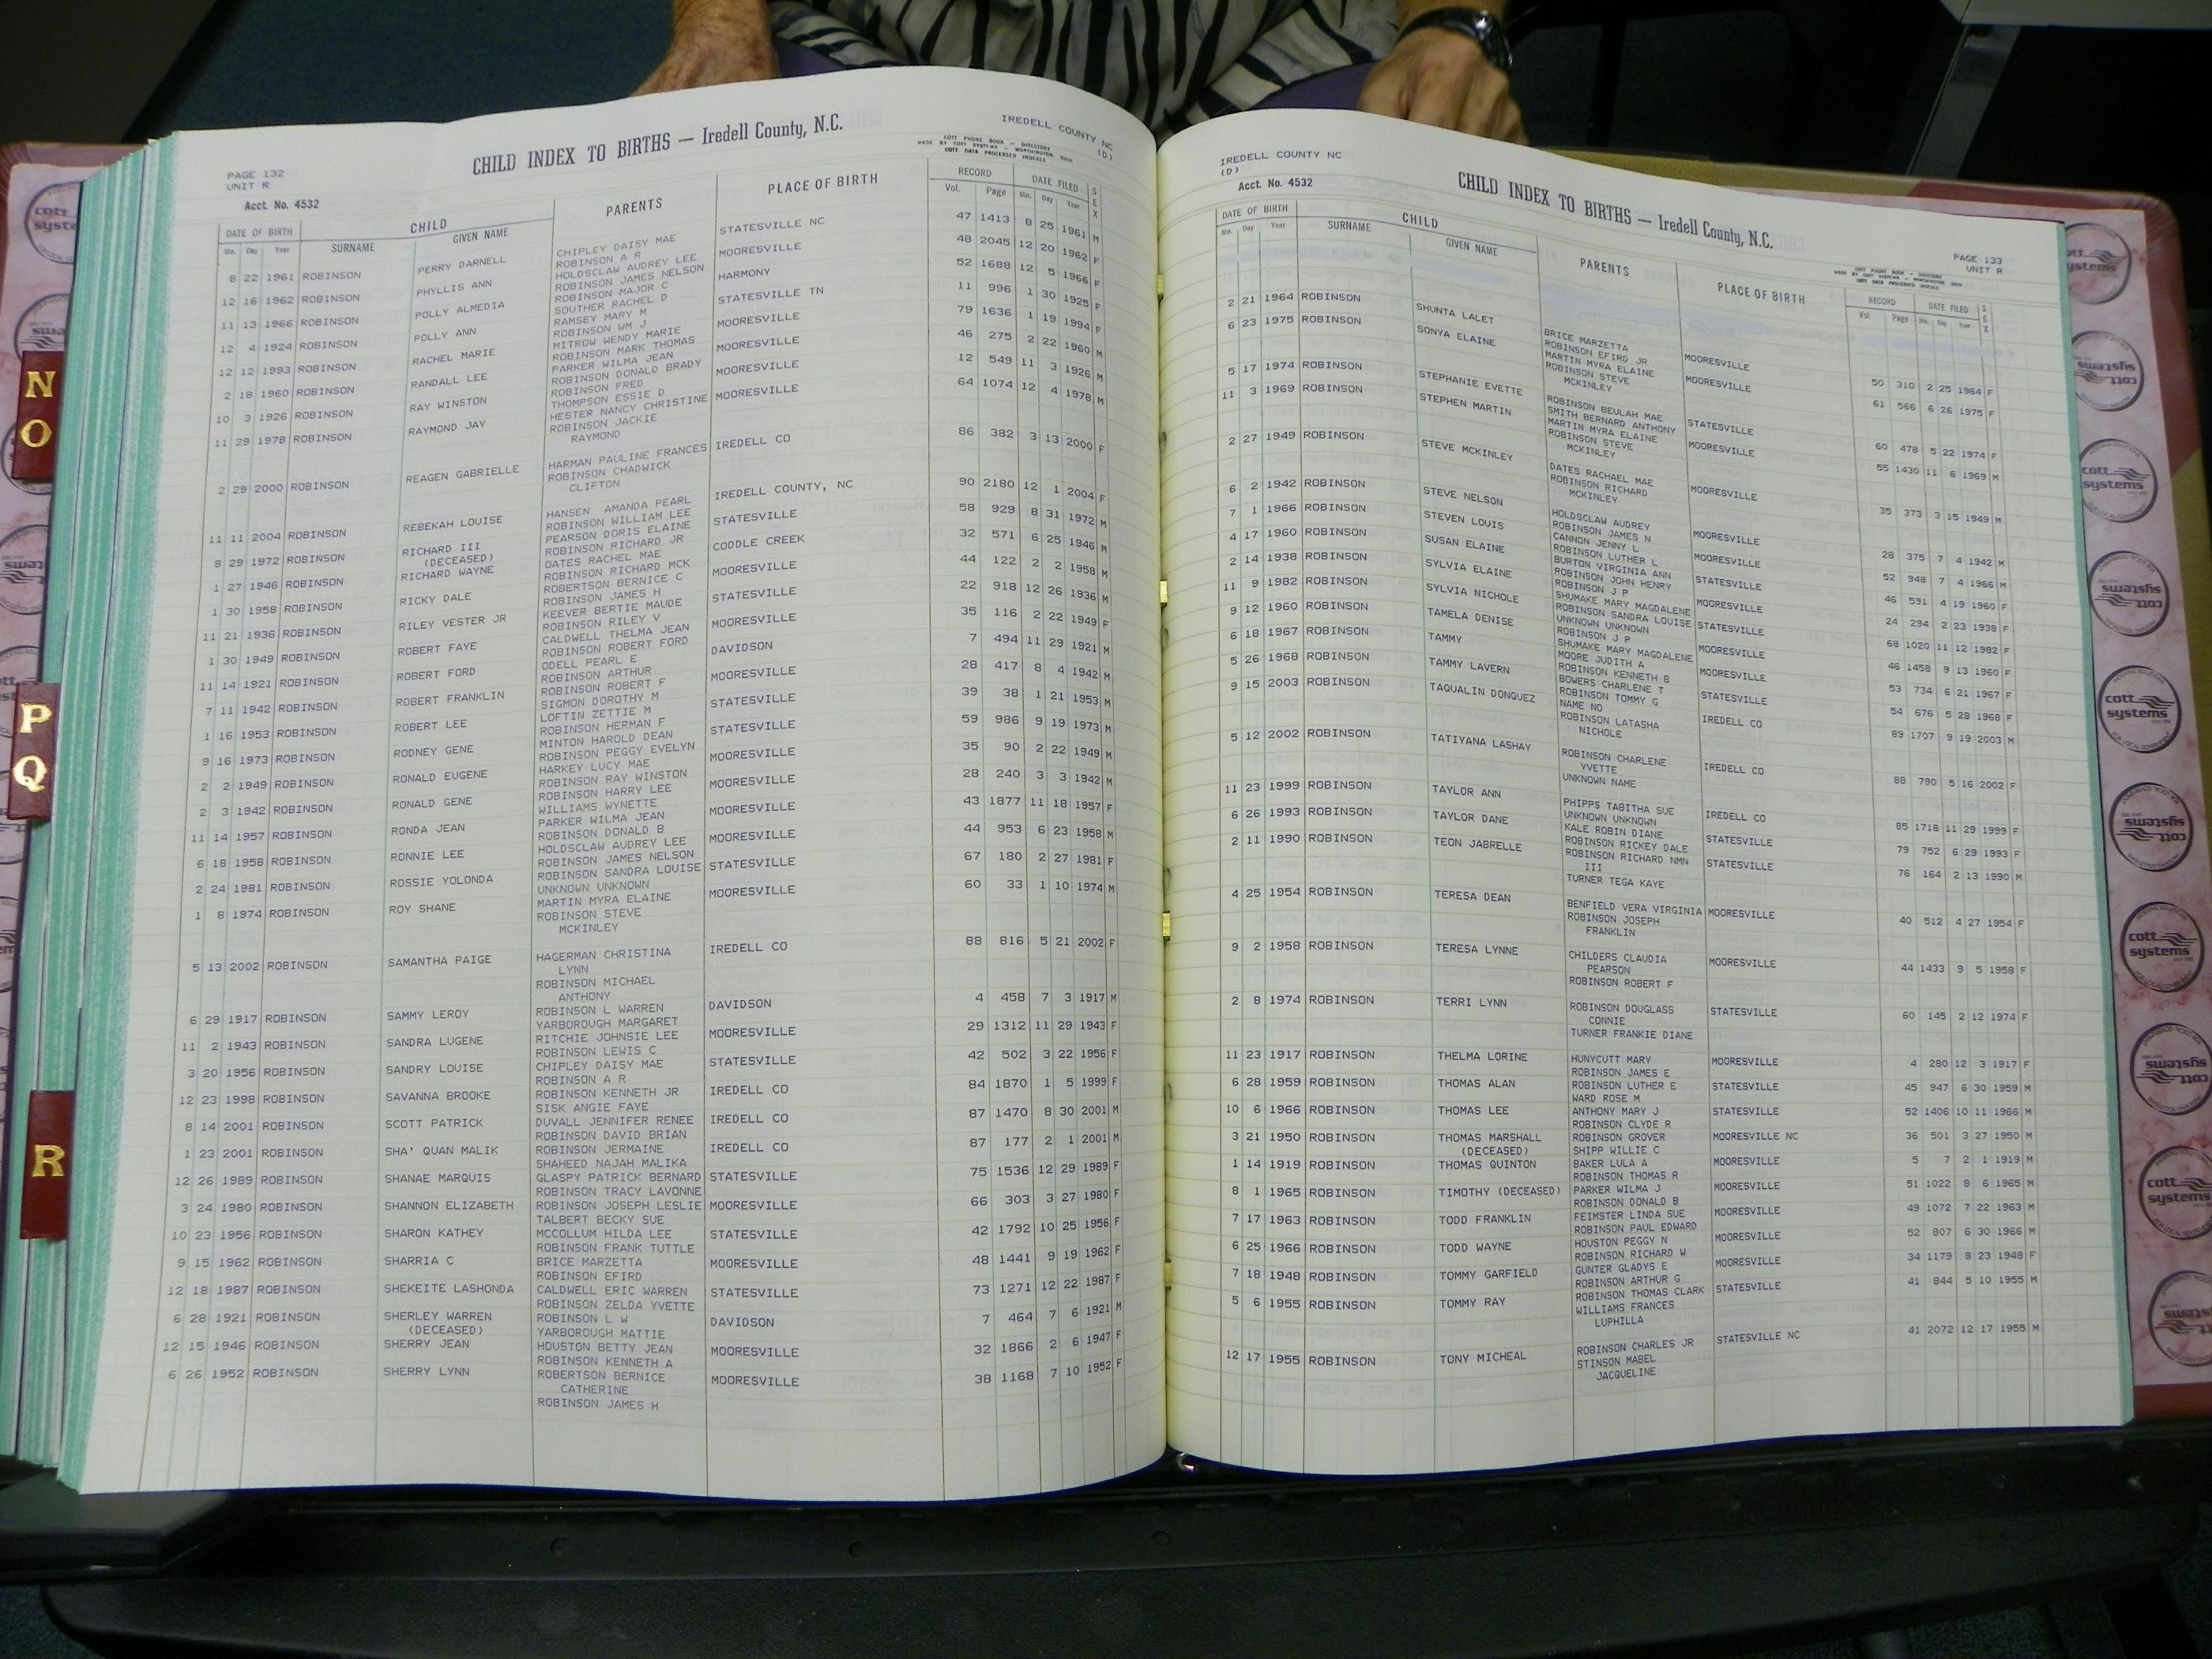 CHILD INDEX TO BIRTHS — Iredell County, N.C.
IREDELL COUNTY NC
(D)
COTT PHONE BOOK - DIRECTORY
MADE BY COTT SYSTEMS - WORTHINGTON OHIO
COTT DATA PROCESSED INDEXES
PAGE 132
UNIT R
Acct. No. 4532
DATE OF BIRTH CHILD PARENTS PLACE OF BIRTH RECORD DATE FILED SEX
Mo. Day Year SURNAME GIVEN NAME Vol. Page Mo. Day Year
8 22 1961 ROBINSON PERRY DARNELL CHIPLEY DAISY MAE STATESVILLE NC 47 1413 8 25 1961 M
ROBINSON A R
12 16 1962 ROBINSON PHYLLIS ANN HOLDSCLAW AUDREY LEE MOORESVILLE 48 2045 12 20 1962 F
ROBINSON JAMES NELSON
11 13 1966 ROBINSON POLLY ALMEDIA ROBINSON MAJOR C HARMONY 52 1688 12 5 1966 F
SOUTHER RACHEL D
12 4 1924 ROBINSON POLLY ANN RAMSEY MARY M STATESVILLE TN 11 996 1 30 1925 F
ROBINSON WM J
12 12 1993 ROBINSON RACHEL MARIE MITROW WENDY MARIE MOORESVILLE 79 1636 1 19 1994 F
ROBINSON MARK THOMAS
2 18 1960 ROBINSON RANDALL LEE PARKER WILMA JEAN MOORESVILLE 46 275 2 22 1960 M
ROBINSON DONALD BRADY
10 3 1926 ROBINSON RAY WINSTON ROBINSON FRED MOORESVILLE 12 549 11 3 1926 M
THOMPSON ESSIE D
11 29 1978 ROBINSON RAYMOND JAY HESTER NANCY CHRISTINE MOORESVILLE 64 1074 12 4 1978 M
ROBINSON JACKIE
RAYMOND
2 29 2000 ROBINSON REAGEN GABRIELLE HARMAN PAULINE FRANCES IREDELL CO 86 382 3 13 2000 F
ROBINSON CHADWICK
CLIFTON
11 11 2004 ROBINSON REBEKAH LOUISE HANSEN AMANDA PEARL IREDELL COUNTY, NC 90 2180 12 1 2004 F
ROBINSON WILLIAM LEE
8 29 1972 ROBINSON RICHARD III PEARSON DORIS ELAINE STATESVILLE 58 929 8 31 1972 M
(DECEASED) ROBINSON RICHARD JR
1 27 1946 ROBINSON RICHARD WAYNE DATES RACHEL MAE CODDLE CREEK 32 571 6 25 1946 M
ROBINSON RICHARD MCK
1 30 1958 ROBINSON RICKY DALE ROBERTSON BERNICE C MOORESVILLE 44 122 2 2 1958 M
ROBINSON JAMES H
11 21 1936 ROBINSON RILEY VESTER JR KEEVER BERTIE MAUDE STATESVILLE 22 918 12 26 1936 M
ROBINSON RILEY V
1 30 1949 ROBINSON ROBERT FAYE CALDWELL THELMA JEAN MOORESVILLE 35 116 2 22 1949 F
ROBINSON ROBERT FORD
11 14 1921 ROBINSON ROBERT FORD ODELL PEARL E DAVIDSON 7 494 11 29 1921 M
ROBINSON ARTHUR
7 11 1942 ROBINSON ROBERT FRANKLIN ROBINSON ROBERT F MOORESVILLE 28 417 8 4 1942 M
SIGMON DOROTHY M
1 16 1953 ROBINSON ROBERT LEE LOFTIN ZETTIE M STATESVILLE 39 38 1 21 1953 M
ROBINSON HERMAN F
9 16 1973 ROBINSON RODNEY GENE MINTON HAROLD DEAN STATESVILLE 59 986 9 19 1973 M
ROBINSON PEGGY EVELYN
2 2 1949 ROBINSON RONALD EUGENE HARKEY LUCY MAE MOORESVILLE 35 90 2 22 1949 M
ROBINSON RAY WINSTON
2 3 1942 ROBINSON RONALD GENE ROBINSON HARRY LEE MOORESVILLE 28 240 3 3 1942 M
WILLIAMS WYNETTE
11 14 1957 ROBINSON RONDA JEAN PARKER WILMA JEAN MOORESVILLE 43 1877 11 18 1957 F
ROBINSON DONALD B
6 18 1958 ROBINSON RONNIE LEE HOLDSCLAW AUDREY LEE MOORESVILLE 44 953 6 23 1958 M
ROBINSON JAMES NELSON
2 24 1981 ROBINSON ROSSIE YOLONDA ROBINSON SANDRA LOUISE STATESVILLE 67 180 2 27 1981 F
UNKNOWN UNKNOWN
1 8 1974 ROBINSON ROY SHANE MARTIN MYRA ELAINE MOORESVILLE 60 33 1 10 1974 M
ROBINSON STEVE
MCKINLEY
5 13 2002 ROBINSON SAMANTHA PAIGE HAGERMAN CHRISTINA IREDELL CO 88 816 5 21 2002 F
LYNN
ROBINSON MICHAEL
ANTHONY
6 29 1917 ROBINSON SAMMY LEROY ROBINSON L WARREN DAVIDSON 4 458 7 3 1917 M
YARBOROUGH MARGARET
11 2 1943 ROBINSON SANDRA LUGENE RITCHIE JOHNSIE LEE MOORESVILLE 29 1312 11 29 1943 F
ROBINSON LEWIS C
3 20 1956 ROBINSON SANDRY LOUISE CHIPLEY DAISY MAE STATESVILLE 42 502 3 22 1956 F
ROBINSON A R
12 23 1998 ROBINSON SAVANNA BROOKE ROBINSON KENNETH JR IREDELL CO 84 1870 1 5 1999 F
SISK ANGIE FAYE
8 14 2001 ROBINSON SCOTT PATRICK DUVALL JENNIFER RENEE IREDELL CO 87 1470 8 30 2001 M
ROBINSON DAVID BRIAN
1 23 2001 ROBINSON SHA' QUAN MALIK ROBINSON JERMAINE IREDELL CO 87 177 2 1 2001 M
SHAHEED NAJAH MALIKA
12 26 1989 ROBINSON SHANAE MARQUIS GLASPY PATRICK BERNARD STATESVILLE 75 1536 12 29 1989 F
ROBINSON TRACY LAVONNE
3 24 1980 ROBINSON SHANNON ELIZABETH ROBINSON JOSEPH LESLIE MOORESVILLE 66 303 3 27 1980 F
TALBERT BECKY SUE
10 23 1956 ROBINSON SHARON KATHEY MCCOLLUM HILDA LEE STATESVILLE 42 1792 10 25 1956 F
ROBINSON FRANK TUTTLE
9 15 1962 ROBINSON SHARRIA C BRICE MARZETTA MOORESVILLE 48 1441 9 19 1962 F
ROBINSON EFIRD
12 18 1987 ROBINSON SHEKEITE LASHONDA CALDWELL ERIC WARREN STATESVILLE 73 1271 12 22 1987 F
ROBINSON ZELDA YVETTE
6 28 1921 ROBINSON SHERLEY WARREN ROBINSON L W DAVIDSON 7 464 7 6 1921 M
(DECEASED) YARBOROUGH MATTIE
12 15 1946 ROBINSON SHERRY JEAN HOUSTON BETTY JEAN MOORESVILLE 32 1866 2 6 1947 F
ROBINSON KENNETH A
6 26 1952 ROBINSON SHERRY LYNN ROBERTSON BERNICE MOORESVILLE 38 1168 7 10 1952 F
CATHERINE
ROBINSON JAMES H
IREDELL COUNTY NC
(D)
Acct. No. 4532
CHILD INDEX TO BIRTHS — Iredell County, N.C.
PAGE 133
UNIT R
COTT PHONE BOOK - DIRECTORY
MADE BY COTT SYSTEMS - WORTHINGTON OHIO
COTT DATA PROCESSED INDEXES
DATE OF BIRTH CHILD PARENTS PLACE OF BIRTH RECORD DATE FILED SEX
Mo. Day Year SURNAME GIVEN NAME Vol. Page Mo. Day Year
2 21 1964 ROBINSON SHUNTA LALET BRICE MARZETTA MOORESVILLE 50 310 2 25 1964 F
ROBINSON EFIRD JR
6 23 1975 ROBINSON SONYA ELAINE MARTIN MYRA ELAINE MOORESVILLE 61 566 6 26 1975 F
ROBINSON STEVE
MCKINLEY
5 17 1974 ROBINSON STEPHANIE EVETTE ROBINSON BEULAH MAE STATESVILLE 60 478 5 22 1974 F
SMITH BERNARD ANTHONY
11 3 1969 ROBINSON STEPHEN MARTIN MARTIN MYRA ELAINE MOORESVILLE 55 1430 11 6 1969 M
ROBINSON STEVE
MCKINLEY
2 27 1949 ROBINSON STEVE MCKINLEY DATES RACHAEL MAE MOORESVILLE 35 373 3 15 1949 M
ROBINSON RICHARD
MCKINLEY
6 2 1942 ROBINSON STEVE NELSON HOLDSCLAW AUDREY MOORESVILLE 28 375 7 4 1942 M
ROBINSON JAMES N
7 1 1966 ROBINSON STEVEN LOUIS CANNON JENNY L MOORESVILLE 52 948 7 4 1966 M
ROBINSON LUTHER L
4 17 1960 ROBINSON SUSAN ELAINE BURTON VIRGINIA ANN STATESVILLE 46 591 4 19 1960 F
ROBINSON JOHN HENRY
2 14 1938 ROBINSON SYLVIA ELAINE ROBINSON J P MOORESVILLE 24 294 2 23 1938 F
SHUMAKE MARY MAGDALENE
11 9 1982 ROBINSON SYLVIA NICHOLE ROBINSON SANDRA LOUISE STATESVILLE 68 1020 11 12 1982 F
UNKNOWN UNKNOWN
9 12 1960 ROBINSON TAMELA DENISE ROBINSON J P MOORESVILLE 46 1458 9 13 1960 F
SHUMAKE MARY MAGDALENE
6 18 1967 ROBINSON TAMMY MOORE JUDITH A MOORESVILLE 53 734 6 21 1967 F
ROBINSON KENNETH B
5 26 1968 ROBINSON TAMMY LAVERN BOWERS CHARLENE T STATESVILLE 54 676 5 28 1968 F
ROBINSON TOMMY G
9 15 2003 ROBINSON TAQUALIN DONQUEZ NAME NO IREDELL CO 89 1707 9 19 2003 M
ROBINSON LATASHA
NICHOLE
5 12 2002 ROBINSON TATIYANA LASHAY ROBINSON CHARLENE IREDELL CO 88 790 5 16 2002 F
YVETTE
UNKNOWN NAME
11 23 1999 ROBINSON TAYLOR ANN PHIPPS TABITHA SUE IREDELL CO 85 1718 11 29 1999 F
UNKNOWN UNKNOWN
6 26 1993 ROBINSON TAYLOR DANE KALE ROBIN DIANE STATESVILLE 79 752 6 29 1993 F
ROBINSON RICKEY DALE
2 11 1990 ROBINSON TEON JABRELLE ROBINSON RICHARD NMN STATESVILLE 76 164 2 13 1990 M
III
TURNER TEGA KAYE
4 25 1954 ROBINSON TERESA DEAN BENFIELD VERA VIRGINIA MOORESVILLE 40 512 4 27 1954 F
ROBINSON JOSEPH
FRANKLIN
9 2 1958 ROBINSON TERESA LYNNE CHILDERS CLAUDIA MOORESVILLE 44 1433 9 5 1958 F
PEARSON
ROBINSON ROBERT F
2 8 1974 ROBINSON TERRI LYNN ROBINSON DOUGLASS STATESVILLE 60 145 2 12 1974 F
CONNIE
TURNER FRANKIE DIANE
11 23 1917 ROBINSON THELMA LORINE HUNYCUTT MARY MOORESVILLE 4 280 12 3 1917 F
ROBINSON JAMES E
6 28 1959 ROBINSON THOMAS ALAN ROBINSON LUTHER E STATESVILLE 45 947 6 30 1959 M
WARD ROSE M
10 6 1966 ROBINSON THOMAS LEE ANTHONY MARY J STATESVILLE 52 1406 10 11 1966 M
ROBINSON CLYDE R
3 21 1950 ROBINSON THOMAS MARSHALL ROBINSON GROVER MOORESVILLE NC 36 501 3 27 1950 M
(DECEASED) SHIPP WILLIE C
1 14 1919 ROBINSON THOMAS QUINTON BAKER LULA A MOORESVILLE 5 7 2 1 1919 M
ROBINSON THOMAS R
8 1 1965 ROBINSON TIMOTHY (DECEASED) PARKER WILMA J MOORESVILLE 51 1022 8 6 1965 M
ROBINSON DONALD B
7 17 1963 ROBINSON TODD FRANKLIN FEIMSTER LINDA SUE MOORESVILLE 49 1072 7 22 1963 M
ROBINSON PAUL EDWARD
6 25 1966 ROBINSON TODD WAYNE HOUSTON PEGGY N MOORESVILLE 52 807 6 30 1966 M
ROBINSON RICHARD W
7 18 1948 ROBINSON TOMMY GARFIELD GUNTER GLADYS E MOORESVILLE 34 1179 8 23 1948 F
ROBINSON ARTHUR G
5 6 1955 ROBINSON TOMMY RAY ROBINSON THOMAS CLARK STATESVILLE 41 844 5 10 1955 M
WILLIAMS FRANCES
LUPHILLA
12 17 1955 ROBINSON TONY MICHEAL ROBINSON CHARLES JR STATESVILLE NC 41 2072 12 17 1955 M
STINSON MABEL
JACQUELINE
N
O
P
Q
R
cott
systems